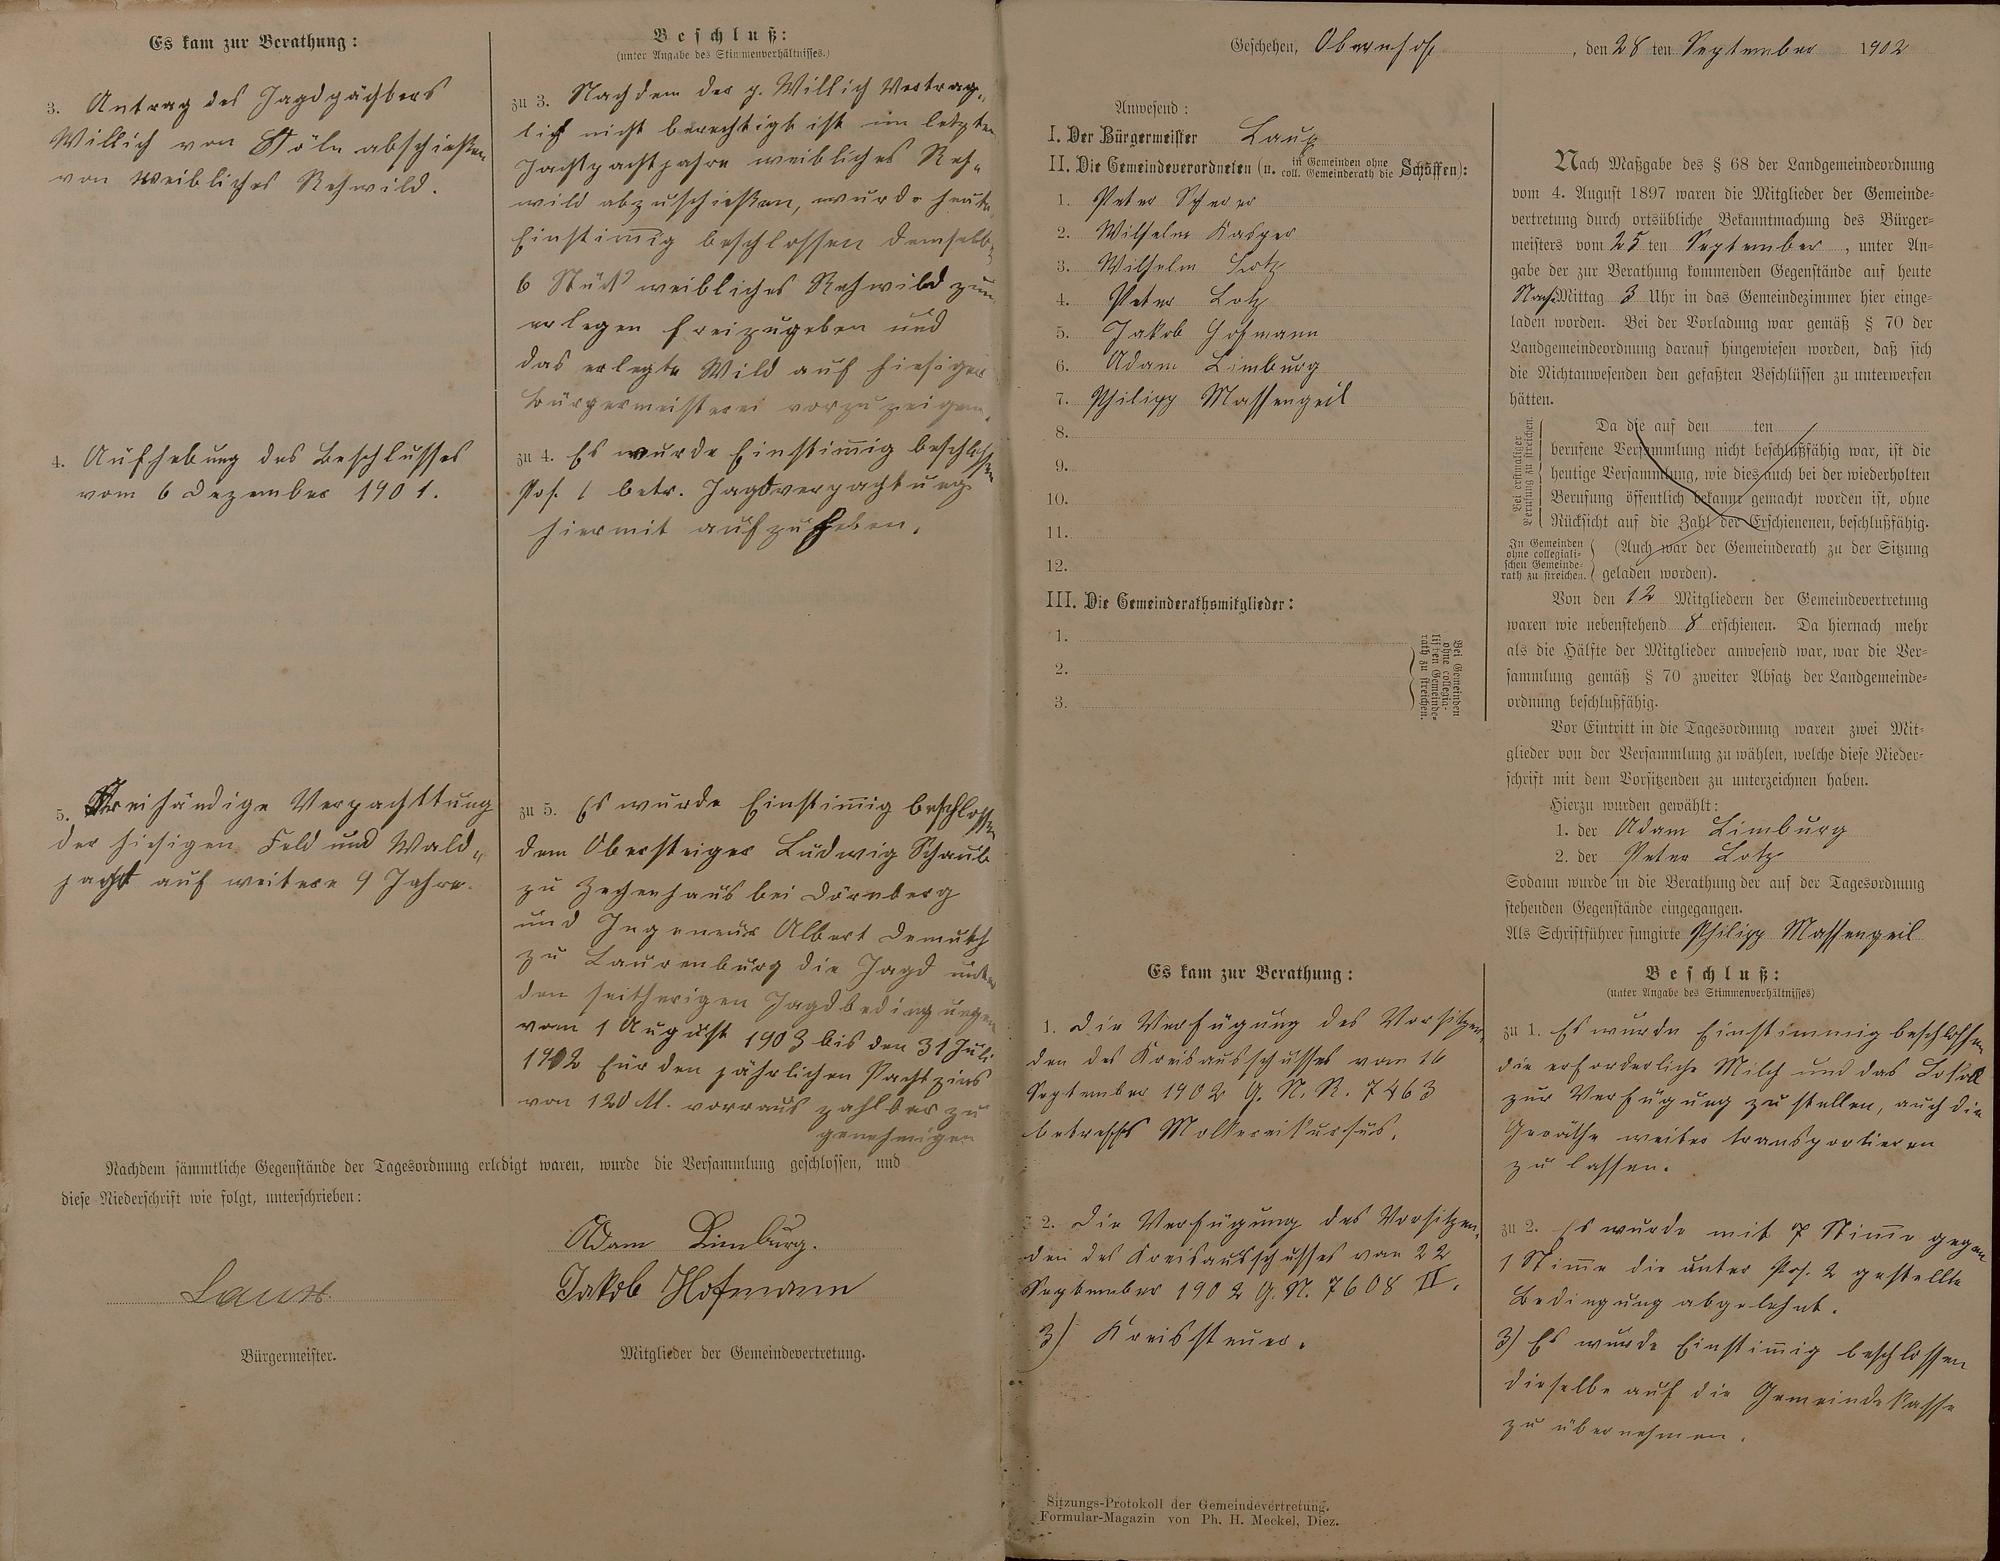 Es kam zur Berathung:
Beschluß:
(unter Angabe des Stimmenverhältnisses.)
3. Antrag des Jagdpächters
Willich von Cöln abschießen
von weibliches Rehwild.
zu 3. Nachdem der p. Willich Vertrag„
lich nicht berechtigt ist im letzten
Jachtpachtjahre weibliches Reh„
wild abzuschießen, wurde heute
Einstimig beschlossen demselb
6 Stück weibliches Rehwild zum
erlegen freizugeben und
das erlegte Wild auf hiesiger
Bürgermeisterei vorzuzeigen.
4. Aufhebung des Beschlusses
vom 6 Dezember 1901.
zu 4. Es wurde Einstimig beschlossen
Pos. 1 betr. Jagdverpachtung
hiermit aufzuheben.
5. Freihändige Verpachttung
der hiesigen Feld und Wald„
jagd auf weitere 9 Jahre.
zu 5. Es wurde Einstimig beschlossen
dem Obersteiger Ludwig Schaub
zu Zechenhaus bei Dörnberg
und Ingeneur Albert Demuth
zu Laurenburg die Jagd unter
den seitherigen Jagdbedingungen
vom 1 August 1903 bis den 31 Juli
1912 für den jährlichen Pachtzins
von 120 M. vorraus zahlbar zu
genehmigen
Nachdem sämmtliche Gegenstände der Tagesordnung erledigt waren, wurde die Versammlung geschlossen, und
diese Niederschrift wie folgt, unterschrieben:
Adam Limburg.
Jakob Hofmann
Bürgermeister.
Mitglieder der Gemeindevertretung.
Geschehen, Obernhof, den 28 ten September 1902
Anwesend:
I. Der Bürgermeister
II. Die Gemeindeverordneten (u. in Gemeinden ohne coll. Gemeinderath die Schöffen):
1. Peter Scherer
2. Wilhelm Kasper
3. Wilhelm Lotz
4. Peter Lotz
5. Jakob Hofmann
6. Adam Limburg
7. Philipp Massengeil
8.
9.
10.
11.
12.
III. Die Gemeinderathsmitglieder:
1.
2.
3.
Bei Gemeinden
ohne collegia-
lischen Gemeinde-
rath zu streichen.
Nach Maßgabe des § 68 der Landgemeindeordnung
vom 4. August 1897 waren die Mitglieder der Gemeinde-
vertretung durch ortsübliche Bekanntmachung des Bürger-
meisters vom 25 ten September, unter An-
gabe der zur Berathung kommenden Gegenstände auf heute
NachMittag 3 Uhr in das Gemeindezimmer hier einge-
laden worden. Bei der Vorladung war gemäß § 70 der
Landgemeindeordnung darauf hingewiesen worden, daß sich
die Nichtanwesenden den gefaßten Beschlüssen zu unterwerfen
hätten.
Bei erstmaliger
Berufung zu streichen.
Da die auf den ten
berufene Versammlung nicht beschlußfähig war, ist die
heutige Versammlung, wie dies auch bei der wiederholten
Berufung öffentlich bekannt gemacht worden ist, ohne
Rücksicht auf die Zahl der Erschienenen, beschlußfähig.
In Gemeinden
ohne collegiali-
schen Gemeinde-
rath zu streichen.
(Auch war der Gemeinderath zu der Sitzung
geladen worden).
Von den 12 Mitgliedern der Gemeindevertretung
waren wie nebenstehend 8 erschienen. Da hiernach mehr
als die Hälfte der Mitglieder anwesend war, war die Ver-
sammlung gemäß § 70 zweiter Absatz der Landgemeinde-
ordnung beschlußfähig.
Vor Eintritt in die Tagesordnung waren zwei Mit-
glieder von der Versammlung zu wählen, welche diese Nieder-
schrift mit dem Vorsitzenden zu unterzeichnen haben.
Hierzu wurden gewählt:
1. der Adam Limburg
2. der Peter Lotz
Sodann wurde in die Berathung der auf der Tagesordnung
stehenden Gegenstände eingegangen.
Als Schriftführer fungirte Philipp Massengeil
Es kam zur Berathung:
Beschluß:
(unter Angabe des Stimmenverhältnisses)
1. Die Verfügung des Vorsitzen„
den des Kreisausschusses vom 16
September 1902 G. N. R. 7463
betreffs Molkereikursus.
zu 1. Es wurde Einstimmig beschlossen
die erforderliche Milch und das Lokal
zur Verfügung zu stellen, auch die
Geräthe weiter transportieren
zu lassen.
2. Die Verfügung des Vorsitzen„
den des Kreisausschusses von 22
September 1902 G. N. 7608 II.
zu 2. Es wurde mit 7 Stime gegen
1 Stime die unter Pos. 2 gestellte
Bedingung abgelehnt.
3) Kreissteuer.
3) Es wurde Einstimig beschlossen
dieselbe auf die Gemeindekasse
zu übernehmen.
Sitzungs-Protokoll der Gemeindevertretung.
Formular-Magazin von Ph. H. Meckel, Diez.